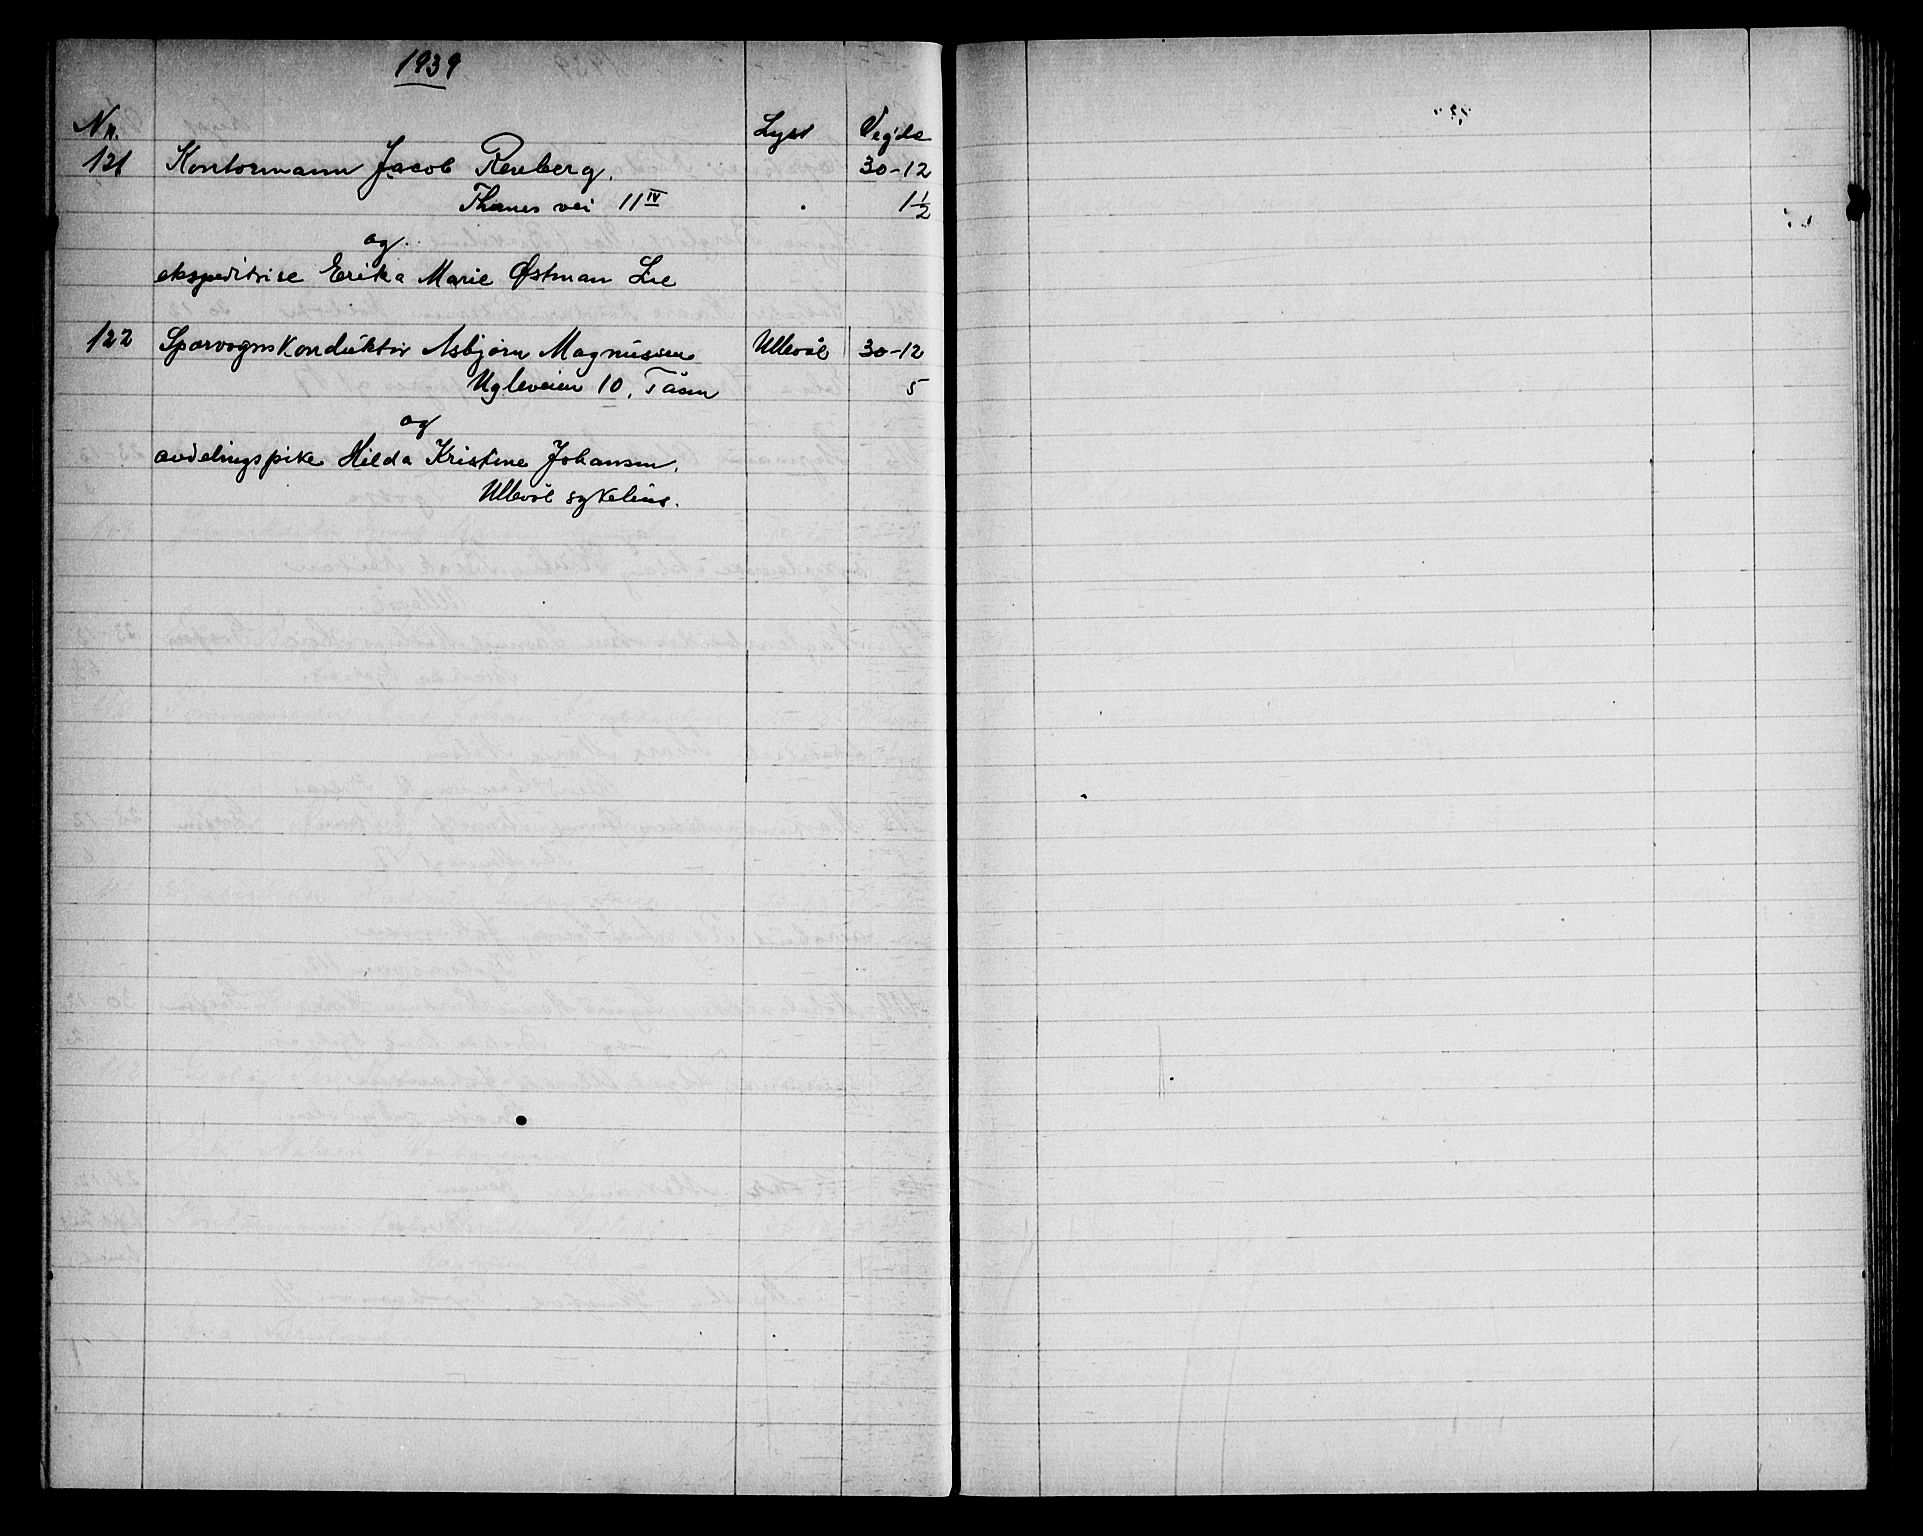 1939
Nr. Lyst Vegde
121 Kontormann Jacob Renberg. 30-12
Thanes vei 11 IV 1 1/2
og
ekspeditrise Erika Marie Østman Lie
122 Sporvognskonduktør Asbjørn Magnussen Ullevål 30-12
Ugleveien 10, Tåsen 5
og
avdelingspike Hilda Kristine Johansen.
Ullevål sykehus.